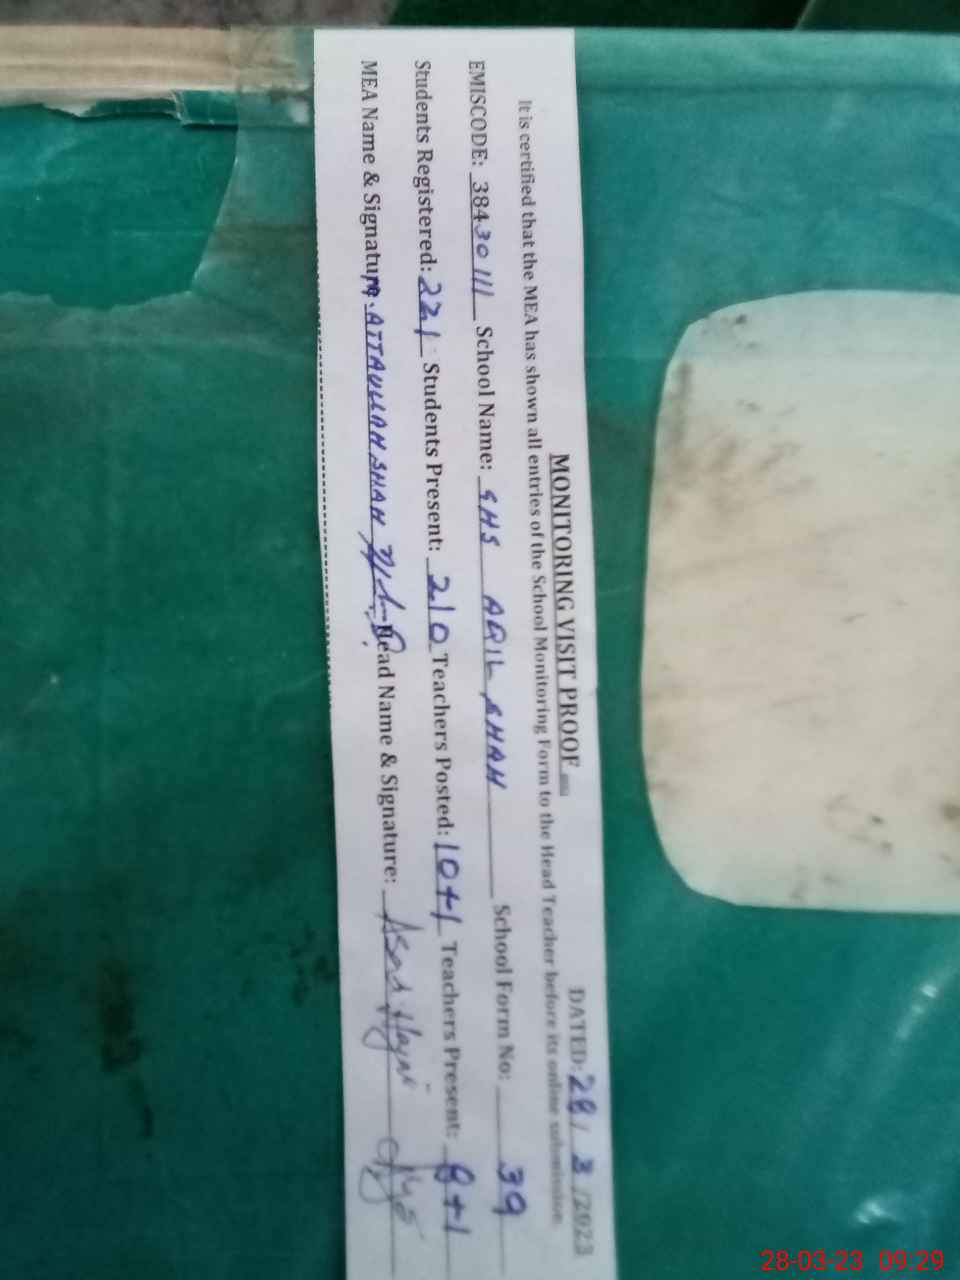 MONITORING VISIT PROOF
DATED: 28/3/2023
It is certified that the MEA has shown all entries of the School Monitoring Form to the Head Teacher before its online submission.
EMISCODE: 38430111 School Name: GHS AQIL SHAH School Form No: 39
Students Registered: 221 Students Present: 210 Teachers Posted: 10+1 Teachers Present: 8+1
MEA Name & Signature: ATTAULLAH SHAH Head Name & Signature: Asad
28-03-23 09:29